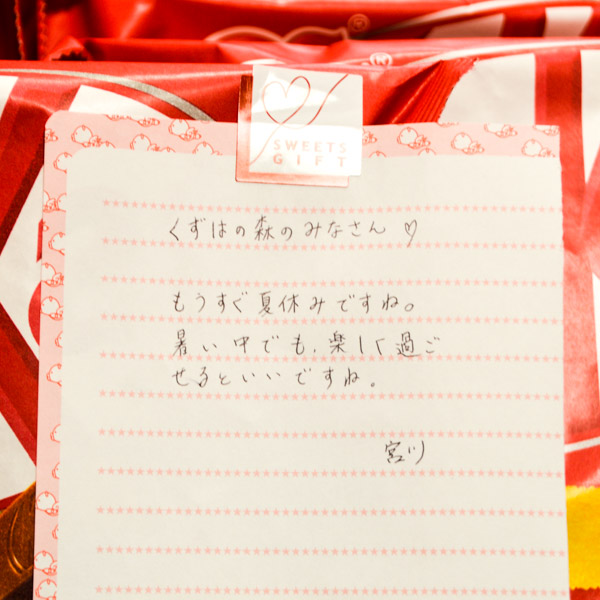 SWEETS
GIFT
くずはの森のみなさん♡
もうすぐ夏休みですね。
暑い中でも、楽しく過ご
せるといいですね。
宮川